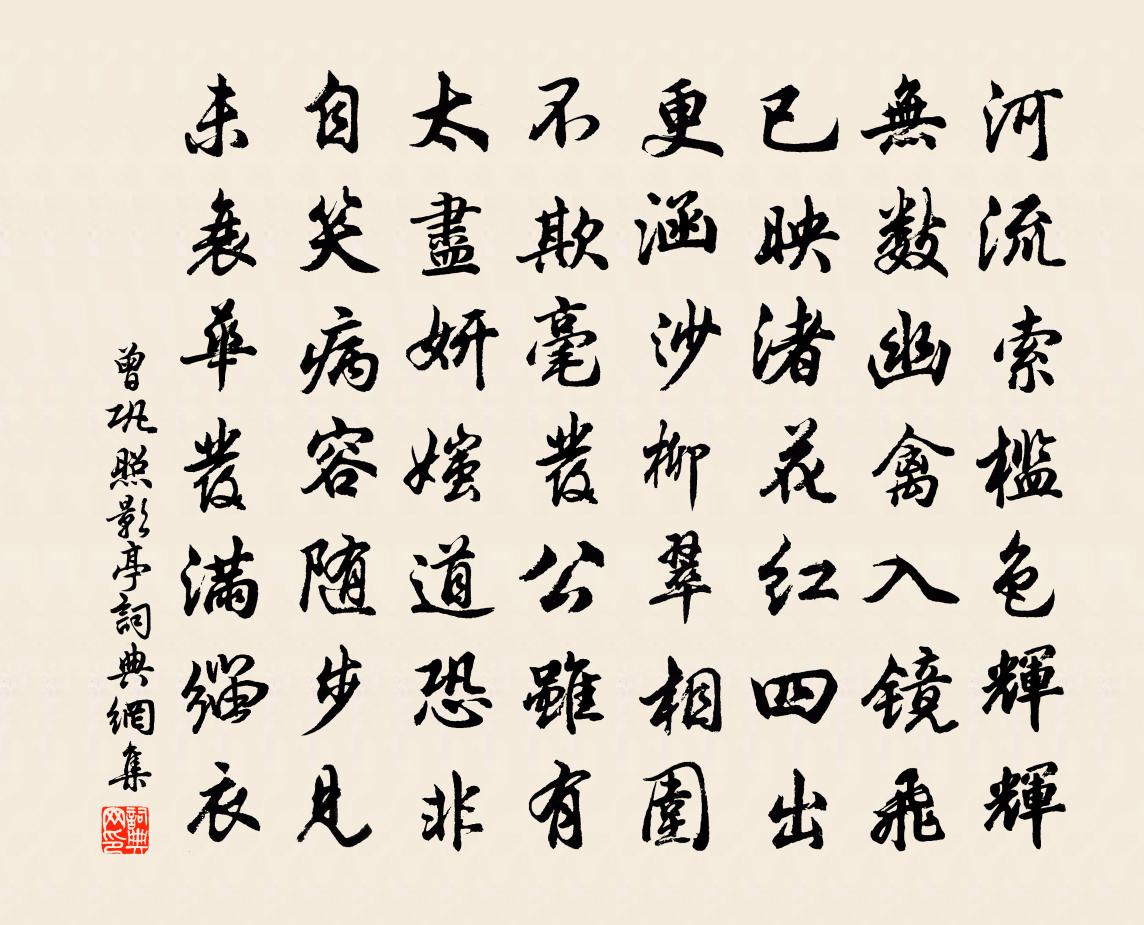 河流索檻色輝輝
無數幽禽入鏡飛
已映渚花紅四出
更涵沙柳翠相圍
不欺毫發公雖有
太盡妍媸道恐非
自笑病容隨步見
未衰華發滿繦衣
曾巩照影亭詞典網集
詞典網印